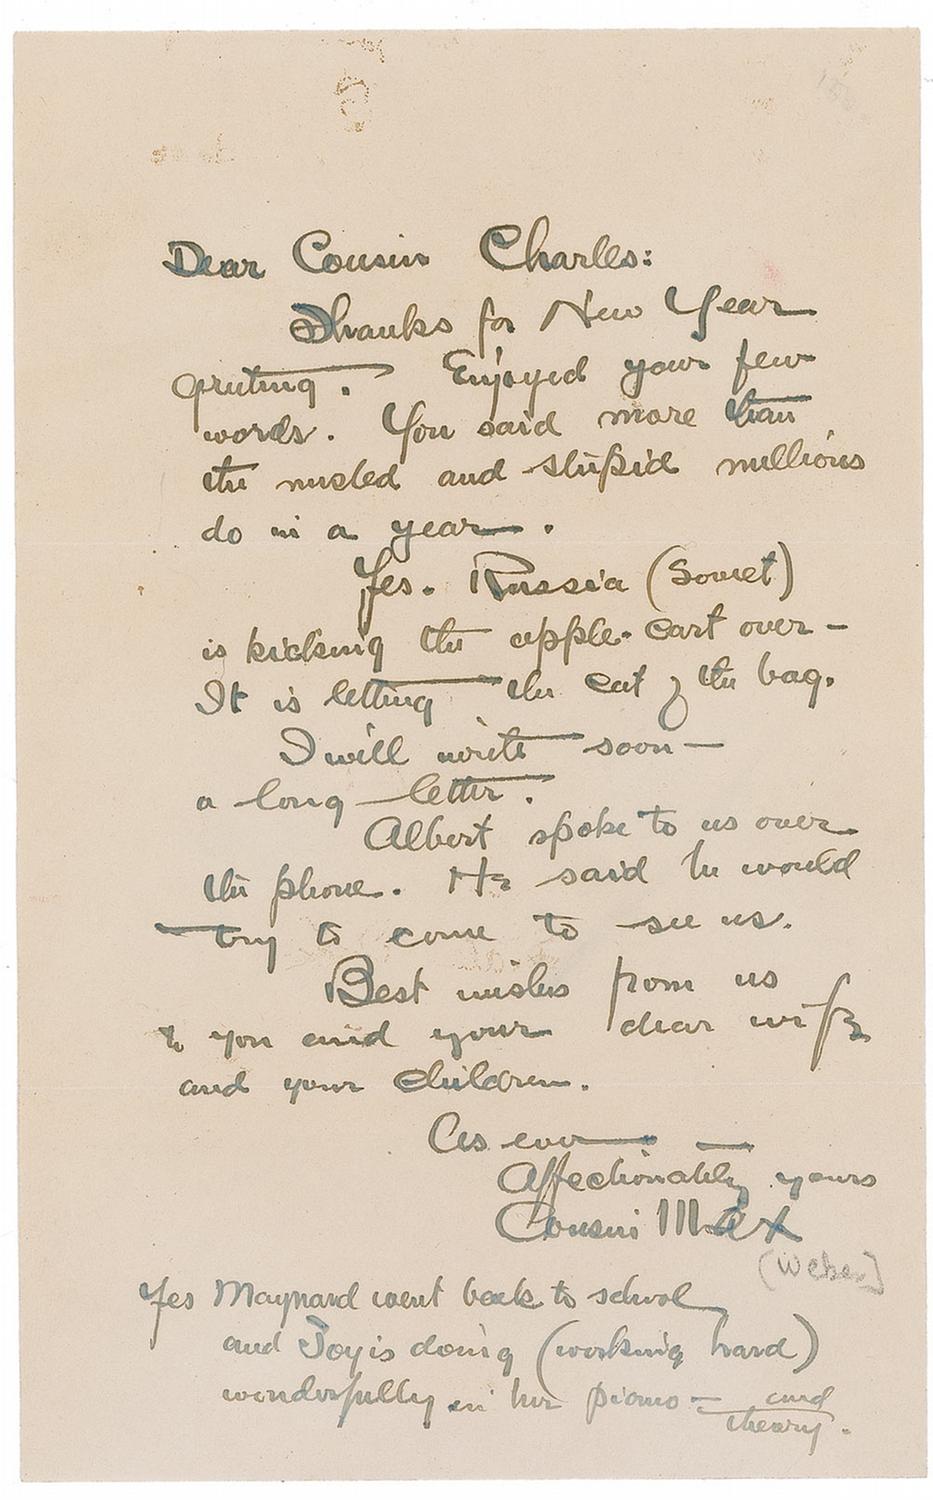 Dear Cousin Charles:
Thanks for New Year
greeting. Enjoyed your few
words. You said more than
the misled and stupid millions
do in a year.
Yes. Russia (Soviet)
is kicking the apple-cart over —
It is letting the cat of the bag.
I will write soon —
a long letter.
Albert spoke to us over
the phone. He said he would
try to come to see us.
Best wishes from us
to you and your dear wife
and your children.
As ever —
Affectionately yours
Cousin Max
(Weber]
Yes Maynard went back to school
and Joy is doing (working hard)
wonderfully in her piano — and
theory.